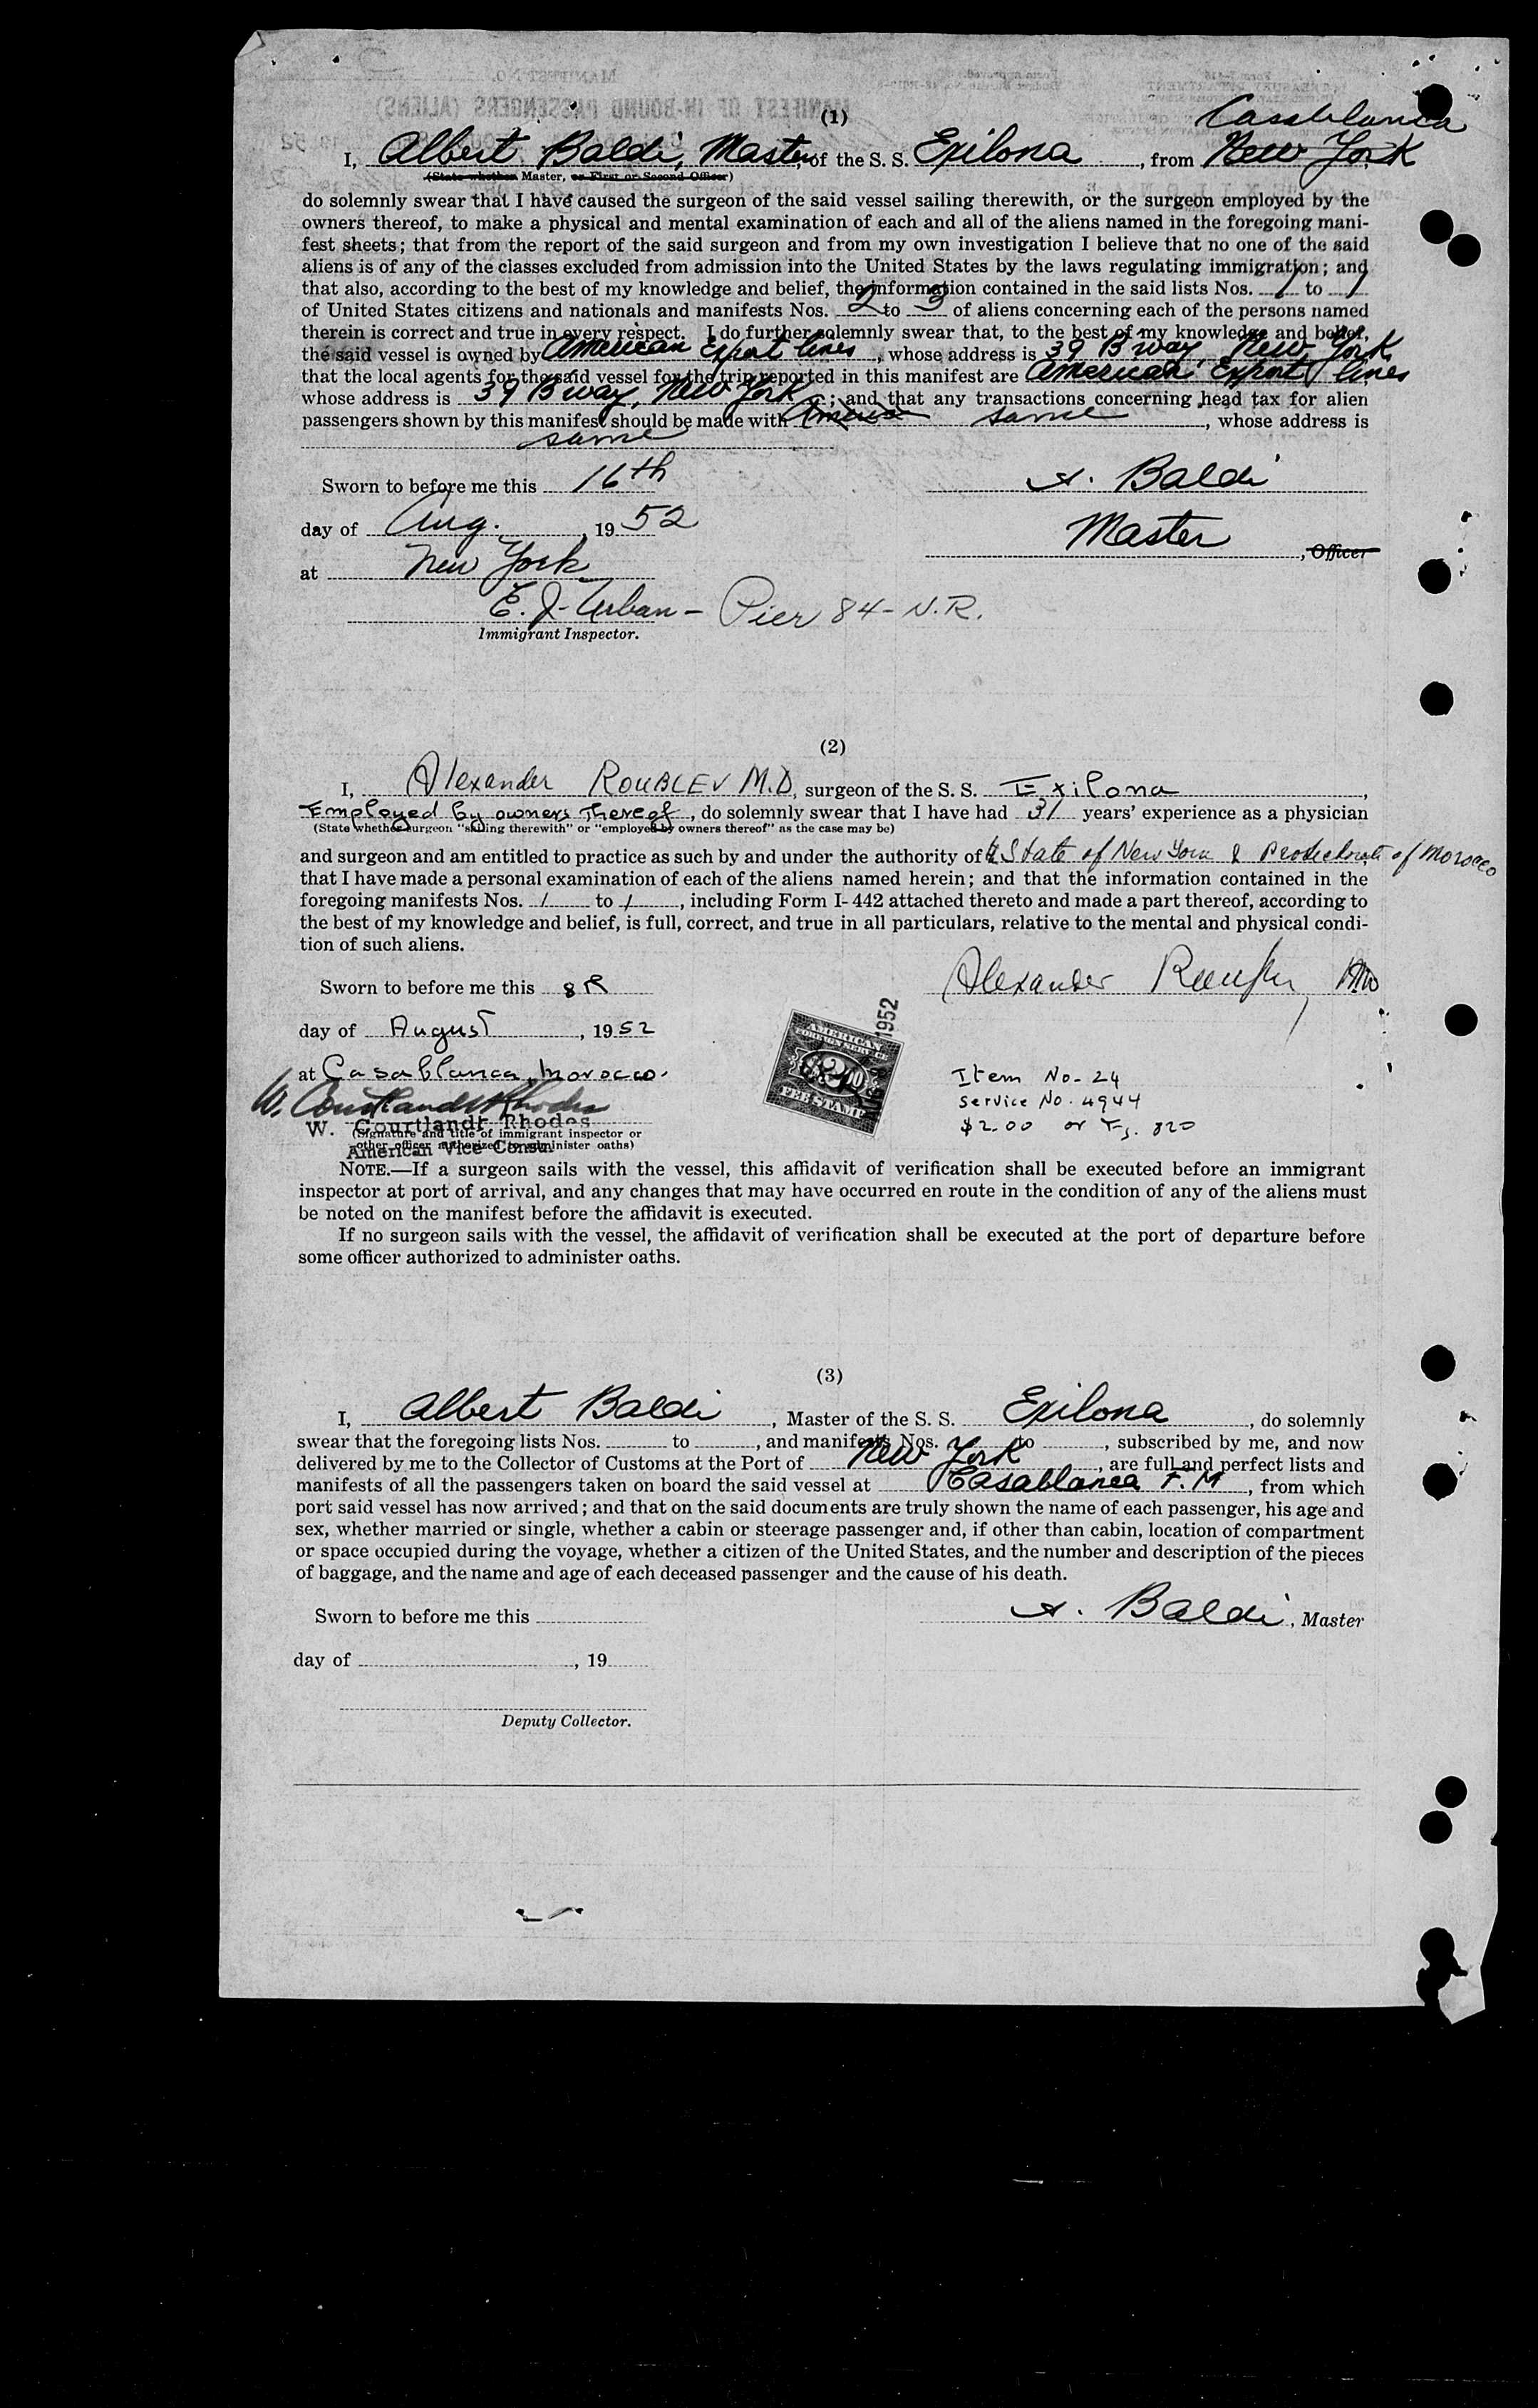 (1)
Casablanca
I, Albert Baldi, Master, of the S. S. Exilona, from New York,
(State whether Master, or First or Second Officer)
do solemnly swear that I have caused the surgeon of the said vessel sailing therewith, or the surgeon employed by the
owners thereof, to make a physical and mental examination of each and all of the aliens named in the foregoing mani-
fest sheets; that from the report of the said surgeon and from my own investigation I believe that no one of the said
aliens is of any of the classes excluded from admission into the United States by the laws regulating immigration; and
that also, according to the best of my knowledge and belief, the information contained in the said lists Nos. 1 to 1
of United States citizens and nationals and manifests Nos. 2 to 3 of aliens concerning each of the persons named
therein is correct and true in every respect. I do further solemnly swear that, to the best of my knowledge and belief,
the said vessel is owned by American Export Lines, whose address is 39 Bway, New York,
that the local agents for the said vessel for the trip reported in this manifest are American Export Lines
whose address is 39 Bway, New York; and that any transactions concerning head tax for alien
passengers shown by this manifest should be made with same, whose address is
same
Sworn to before me this 16th
A. Baldi
day of Aug., 1952
Master, Officer
at New York
E. J. Urban - Pier 84 - N.R.
Immigrant Inspector.
(2)
I, Alexander ROUBLEV M.D, surgeon of the S. S. Exilona,
Employed by owners thereof, do solemnly swear that I have had 31 years' experience as a physician
(State whether surgeon "sailing therewith" or "employed by owners thereof" as the case may be)
and surgeon and am entitled to practice as such by and under the authority of State of New York & Protectorate of Morocco
that I have made a personal examination of each of the aliens named herein; and that the information contained in the
foregoing manifests Nos. 1 to 1, including Form I-442 attached thereto and made a part thereof, according to
the best of my knowledge and belief, is full, correct, and true in all particulars, relative to the mental and physical condi-
tion of such aliens.
Sworn to before me this 8
Alexander
day of August, 1952
1952
AMERICAN
FOREIGN SERVICE
$2.00
FEE STAMP
at Casablanca, Morocco.
Item No. 24
Service No. 4944
$2.00 or Fs. 820
W. Courtlandt Rhodes
W. Courtlandt Rhodes
(Signature and title of immigrant inspector or
other officer authorized to administer oaths)
American Vice Consul
NOTE.—If a surgeon sails with the vessel, this affidavit of verification shall be executed before an immigrant
inspector at port of arrival, and any changes that may have occurred en route in the condition of any of the aliens must
be noted on the manifest before the affidavit is executed.
If no surgeon sails with the vessel, the affidavit of verification shall be executed at the port of departure before
some officer authorized to administer oaths.
(3)
I, Albert Baldi, Master of the S. S. Exilona, do solemnly
swear that the foregoing lists Nos. to , and manifests Nos. to , subscribed by me, and now
delivered by me to the Collector of Customs at the Port of New York, are full and perfect lists and
manifests of all the passengers taken on board the said vessel at Casablanca F.M, from which
port said vessel has now arrived; and that on the said documents are truly shown the name of each passenger, his age and
sex, whether married or single, whether a cabin or steerage passenger and, if other than cabin, location of compartment
or space occupied during the voyage, whether a citizen of the United States, and the number and description of the pieces
of baggage, and the name and age of each deceased passenger and the cause of his death.
Sworn to before me this
A. Baldi, Master
day of , 19
Deputy Collector.